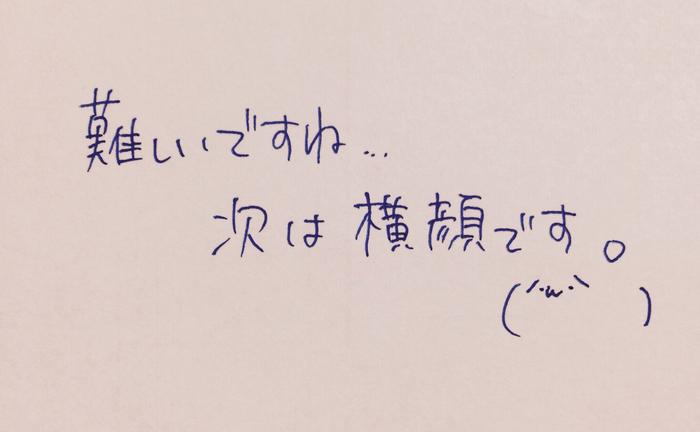 難しいですね...
次は横顔です。
(´･ω･｀　)